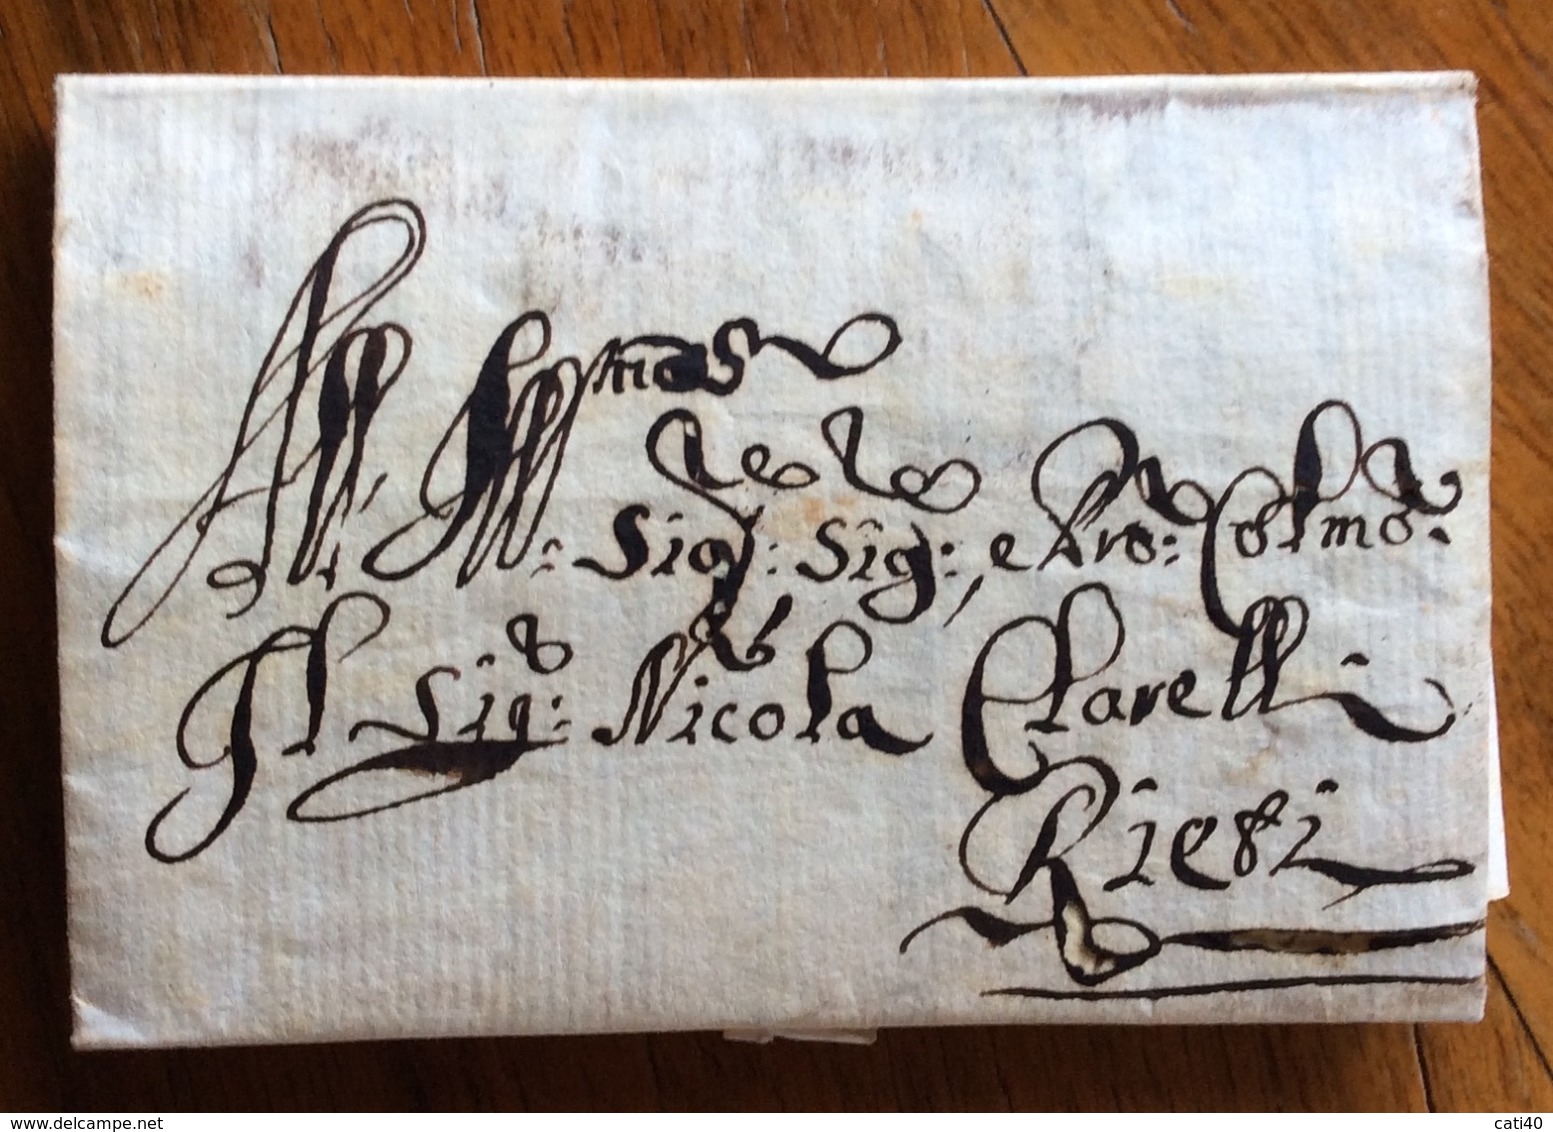 All' Ill:mo Sig: Sig:, e Pro͞n: Colmo:
Il Sig: Nicola Clarelli
Rieti
www.delcampe.net
cati40